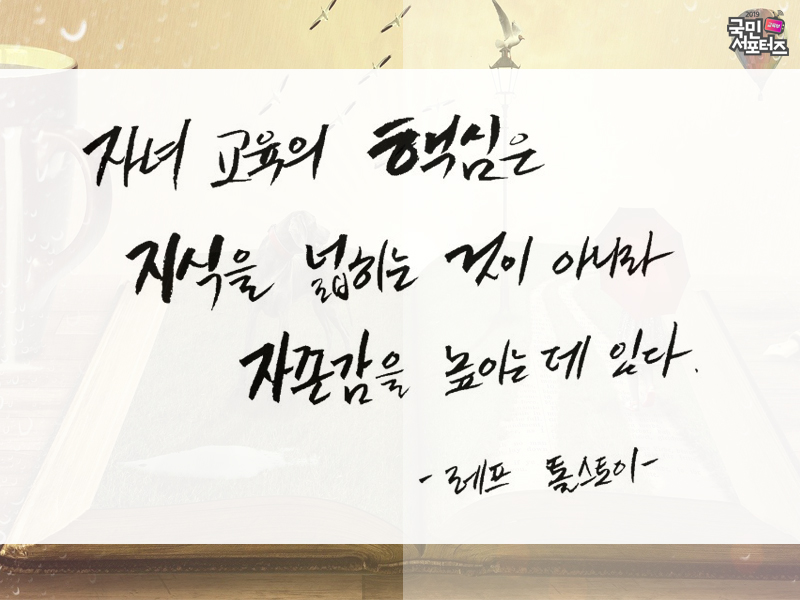 2019
국민 교육부
서포터즈
자녀 교육의 핵심은
지식을 넓히는 것이 아니라
자존감을 높이는 데 있다.
-레프 톨스토이-